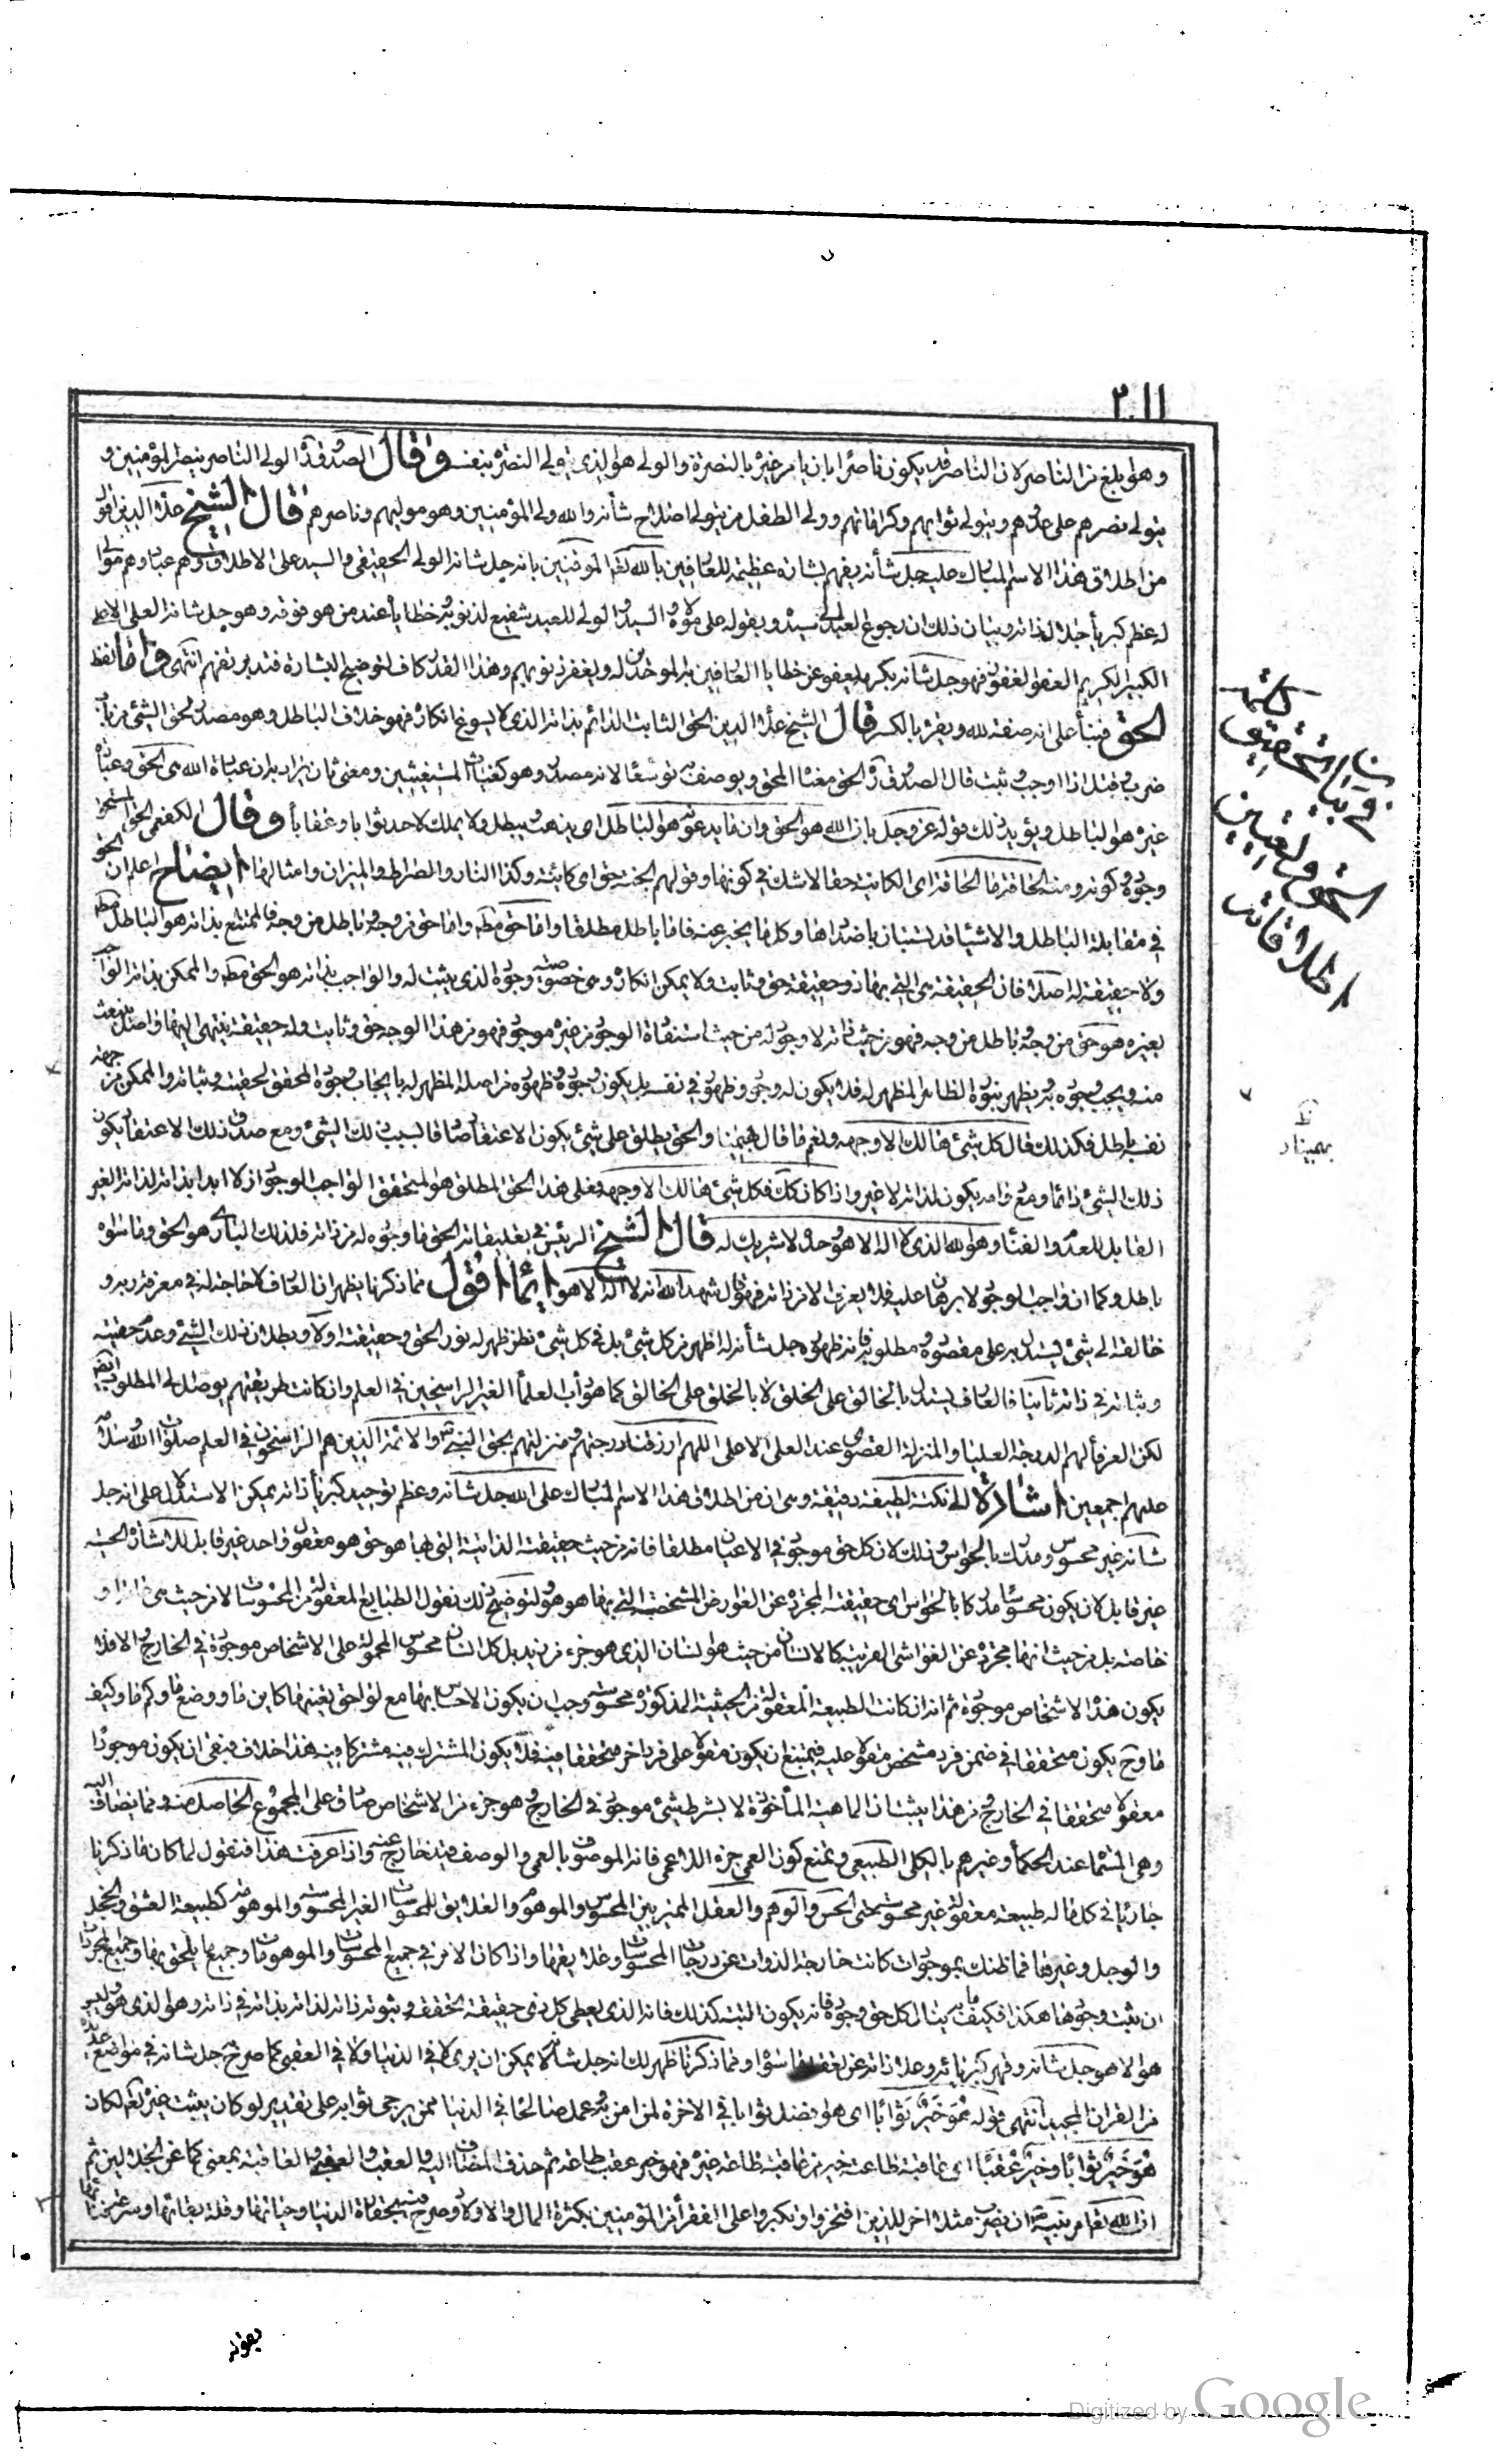 ٢١١
وهو ابلغ من الناصر لان الناصر قد يكون ناصرا بان يامر غيره بالنصرة والولى هو الذى يتولى النصرة بنفسه وقال الصدوق ره الولى الناصر ينصر المؤمنين و
يتولى نصرهم على عدوهم ويتولى ثوابهم وكراماتهم وولى الطفل من يتولى اصلاح شأنه والله ولى المؤمنين وهو موليهم وناصرهم قال الشيخ علاء الدين اقول
من اطلاق هذا الاسم المبارك عليه جل شأنه يفهم بشارة عظيمة للعارفين بالله الموقنين بانه جل شانه الولى الحقيقى والسيد على الاطلاق وهم عباده وهم موالى
له عظم كبرياء جلال ذاته وبيان ذلك ان رجوع العبد الى سيده وبقوله على مولاه والسيد الولى للعبد شفيع لذنوبه وخطاياه عند من هو فوقه وهو جل شانه العلى الاعلى
الكبير الكريم العفو الغفور فهو جل شانه بكرمه يعفو عن خطايا العارفين به الموحدين له ويغفر ذنوبهم وهذا القدر كاف لتوضيح البشارة فتدبر تفهم انتهى واما لفظ
الحق فبناء على انه صفة لله ويقرء بالكسر قال الشيخ علاء الدين الحق الثابت الدائم بذاته الذى لا يسوغ انكاره فهو خلاف الباطل وهو مصدر لحق الشئ من باب
ضرب وقتل اذا وجب وثبت قال الصدوق ره الحق معناه المحق ويوصف به توسعا لانه مصدر وهو كغياث المستغيثين ومعنى ثان يراد به ان عبادة الله هى الحق وعبادة
غيره هو الباطل ويؤيد ذلك قوله عز وجل بان الله هو الحق وان ما يدعون هو الباطل اى يذهب ويبطل ولا يملك لاحد ثوابا وعقابا وقال الكفعمى الحق المتحقق
وجوده وكونه ومنه الحاقة ما الحاقة اى الكائنة حقا لا شك فى كونها وقولهم الجنة حق اى كائنة وكذا النار والصراط والميزان وامثالها ايضاح اعلم ان الحق
فى مقابلة الباطل والاشياء قد تستبان باضدادها وكل ما يخبر عنه فاما باطل مطلقا واما حق مطلقا واما حق من وجه باطل من وجه فالممتنع بذاته هو الباطل مطلقا
ولا حقيقة له اصلا فان الحقيقة هى التى بها ذو حقيقة حق وثابت ولا يمكن انكاره وهى خصوصية وجوده الذى يثبت له والواجب بذاته هو الحق مطلقا والممكن بذاته الواجب
بغيره هو حق من وجه باطل من وجه فهو من حيث ذاته لا وجود له من حيث استفادة الوجود من غيره موجود فهو من هذا الوجه حق وثابت وله حقيقة ينتهى اليها واصل ينبعث
منه ويجب وجوده به ويظهر بنوره الظاهر المظهر له فلا يكون له وجود وظهور فى نفسه بل يكون وجوده وظهوره من اصله المظهر له بايجاب وجوده المحقق لحقيته وثباته والممكن من جهة
نفسه باطل فكذلك قال كل شئ هالك الا وجهه ولنعم ما قال بهمنيار والحق يطلق على شئ يكون الاعتقاد صادقا لسبب ذلك الشئ ومع صدق ذلك الاعتقاد يكون
ذلك الشئ دائما ومع دوامه يكون لذاته لا غير واذا كان كك فكل شئ هالك الا وجهه فعلى هذا الحق المطلق هو المتحقق الواجب الوجود ازلا ابدا بذاته لذاته الغير
القابل للعدم والفناء وهو الله الذى لا اله الا هو وحده لا شريك له قال الشيخ الرئيس فى تعليقاته الحق ما وجوده له من ذاته فلذلك البارى هو الحق وما سواه
باطل وكما ان واجب الوجود لا برهان عليه فلا يعرف الا من ذاته فهو كما قال شهد الله انه لا اله الا هو ايماء اقول مما ذكرنا يظهر ان العارف لا حاجة له فى معرفة ربه و
خالقه الى شئ ليستدل به على مقصوده ومطلوبه فانه ظهوره جل شأنه له اظهر من كل شئ بل فى كل شئ نظر ظهر له نور الحق وحقيقته اولا وبطلان ذلك الشئ وعدم حقيته
وثباته فى ذاته ثانيا فالعارف يستدل بالخالق على الخلق لا بالخلق على الخالق كما هو دأب العلماء الغير الراسخين فى العلم وان كانت طريقتهم يوصل الى المطلوب ايضا
لكن العرفاء لهم الدرجة العليا والمنزلة القصوى عند العلى الاعلى اللهم ارزقنا درجتهم ومنزلتهم بحق النبى والائمة الذين هم الراسخون فى العلم صلوات الله وسلامه
عليهم اجمعين اشارة الى نكتة لطيفة دقيقة وهى ان من اطلاق هذا الاسم المبارك على الله جل شانه وعظم توحيد كبرياء ذاته يمكن الاستدلال على انه جل
شانه غير محسوس ومدرك بالحواس وذلك لان كل حق موجود فى الاعيان مطلقا فانه من حيث حقيقته الذاتية التى بها هو حق هو معقول واحد غير قابل للاشارة الحسية
غير قابل لان يكون محسوسا مدركا بالحواس اى حقيقته المجردة عن العوارض المشخصة التى بها هو هو ولتوضيح ذلك نقول الطبايع المعقولة من المحسوسات لا من حيث هى
خاصة بل من حيث انها مجردة عن الغواشى الغريبة كالانسان من حيث هو انسان الذى هو جزء من زيد بل كل انسان محسوس المحمولة على الاشخاص موجودة فى الخارج والا فلا
يكون هذه الاشخاص موجودة ثم انه ان كانت الطبيعة المعقولة من الحيثية المذكورة محسوسة وجب ان يكون الاحساس بها مع لواحق بعينها كاين ما ووضع ما وكم ما وكيف
ما وح يكون متحققا فى ضمن فرد مشخص مقولا عليه فيمتنع ان يكون مقولا على فرد اخر متحققا فيه فلا يكون المشترك فيه مشتركا فيه هذا خلاف فبقى ان يكون موجودا
معقولا متحققا فى الخارج من هذا يثبت ان الماهية المأخوذة لا بشرط شئ موجود فى الخارج وهو جزء من الاشخاص صادق على المجموع الحاصل منه ومما يضاف اليه
وهى المسماة عند الحكماء وغيرهم بالكلى الطبيعى ويمتنع كون العمى جزء الاعمى فانه الموصوف بالعمى والوصف فيه خارج عنه واذا عرفت هذا فنقول لما كان ما ذكرنا
جاريا فى كل ما له طبيعة معقولة غير محسوسة حتى الحس والوهم والعقل المميز بين المحسوس والموهوم والعلايق للمحسوسات الغير المحسوسة والموهومة كطبيعة العشق والخجل
والوجل وغيرها فما ظنك بموجودات كانت خارجة الذوات عن درجات المحسوسات وعلايقها واذا كان الامر فى جميع المحسوسات والموهومات وجميع ما يلحق بها وجميع المجردات
ان يثبت وجودها هكذا فكيف ما ينال كل حق وجوده فانه يكون البتة كذلك فانه الذى يعطى كل ذى حقيقة التحقق وثبوته ذاته لذاته بذاته فى ذاته وهو الذى هو وليس
هو الا هو جل شانه وقهر كبريائه وعلا ذاته عن تعقل ما سواه ومما ذكرنا ظهر لك انه جل شانه لا يمكن ان يرى لا فى الدنيا ولا فى العقبى كما صرح جل شانه فى مواضع عديدة
من القرآن المجيد انتهى قوله هُوَ خَيْرٌ ثَوَابًا اى هو يفضل ثوابا فى الاخرة لمن امن به وعمل صالحا فى الدنيا ممن يرجى ثوابه على تقدير لو كان يثيب غيره تعالى لكان
هُوَ خَيْرٌ ثوابًا وخيرٌ عُقْبًا اى عاقبة طاعته خير من عاقبة طاعة غيره فهو خير عقب طاعة ثم حذف المضاف اليه والعقب والعقبى والعاقبة بمعنى كما عن الجلالين ثم
ان الله تعالى امر نبيه ان يضرب مثلا اخر للذين افتخروا وتكبروا على الفقراء من المؤمنين بكثرة المال والاولاد وصرح فيه بحقارة الدنيا وحياتها وقلة بقائها وسرعة فنائها
بقوله
فى بيان تحقيق
الحق وتعيين
اطلاقاته
بهمنيار
Digitized by Google